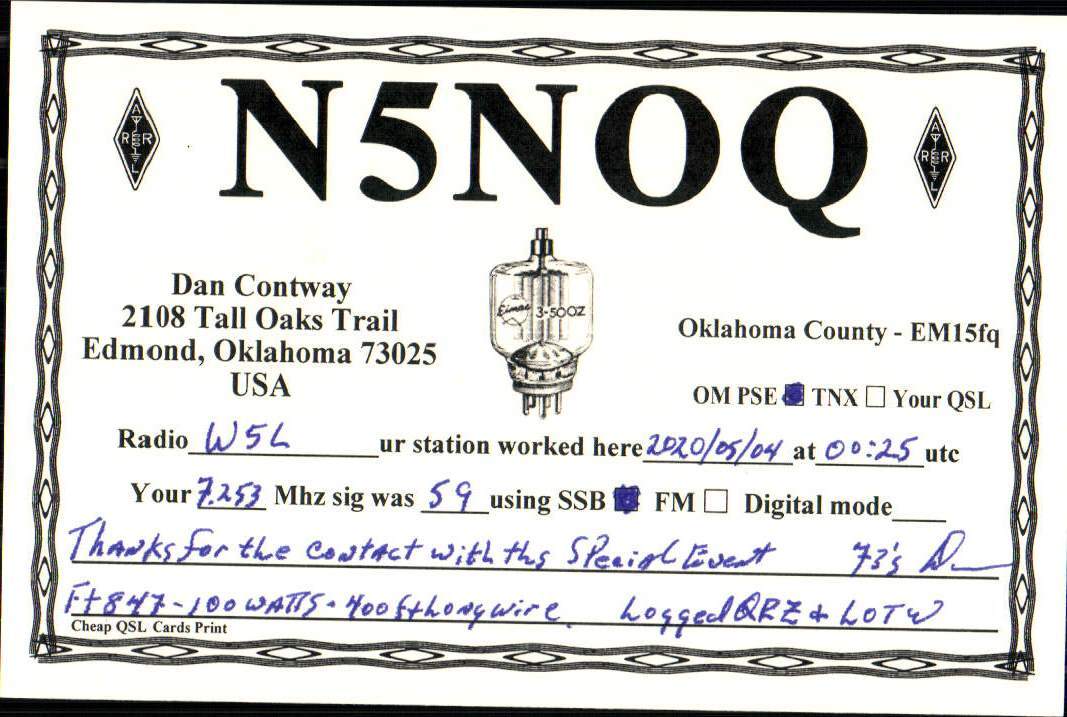 N5NOQ
A
R R
L
A
R R
L
Eimac 3-500Z
Dan Contway
2108 Tall Oaks Trail
Edmond, Oklahoma 73025
USA
Oklahoma County - EM15fq
OM PSE TNX Your QSL
Radio W5L ur station worked here 2020/05/04 at 00:25 utc
Your 7.253 Mhz sig was 59 using SSB FM Digital mode
Thanks for the contact with ths Special Event 73's D
Ft847-100WATTS-400ft Longwire Logged QRZ & LOTW
Cheap QSL Cards Print